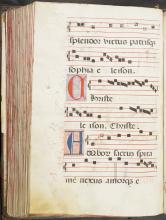 splendor virtus patrisq;
sophia e leison.
Christe
le ison. Christe.
Amborū sacrū spira
mē nexus amorq; e